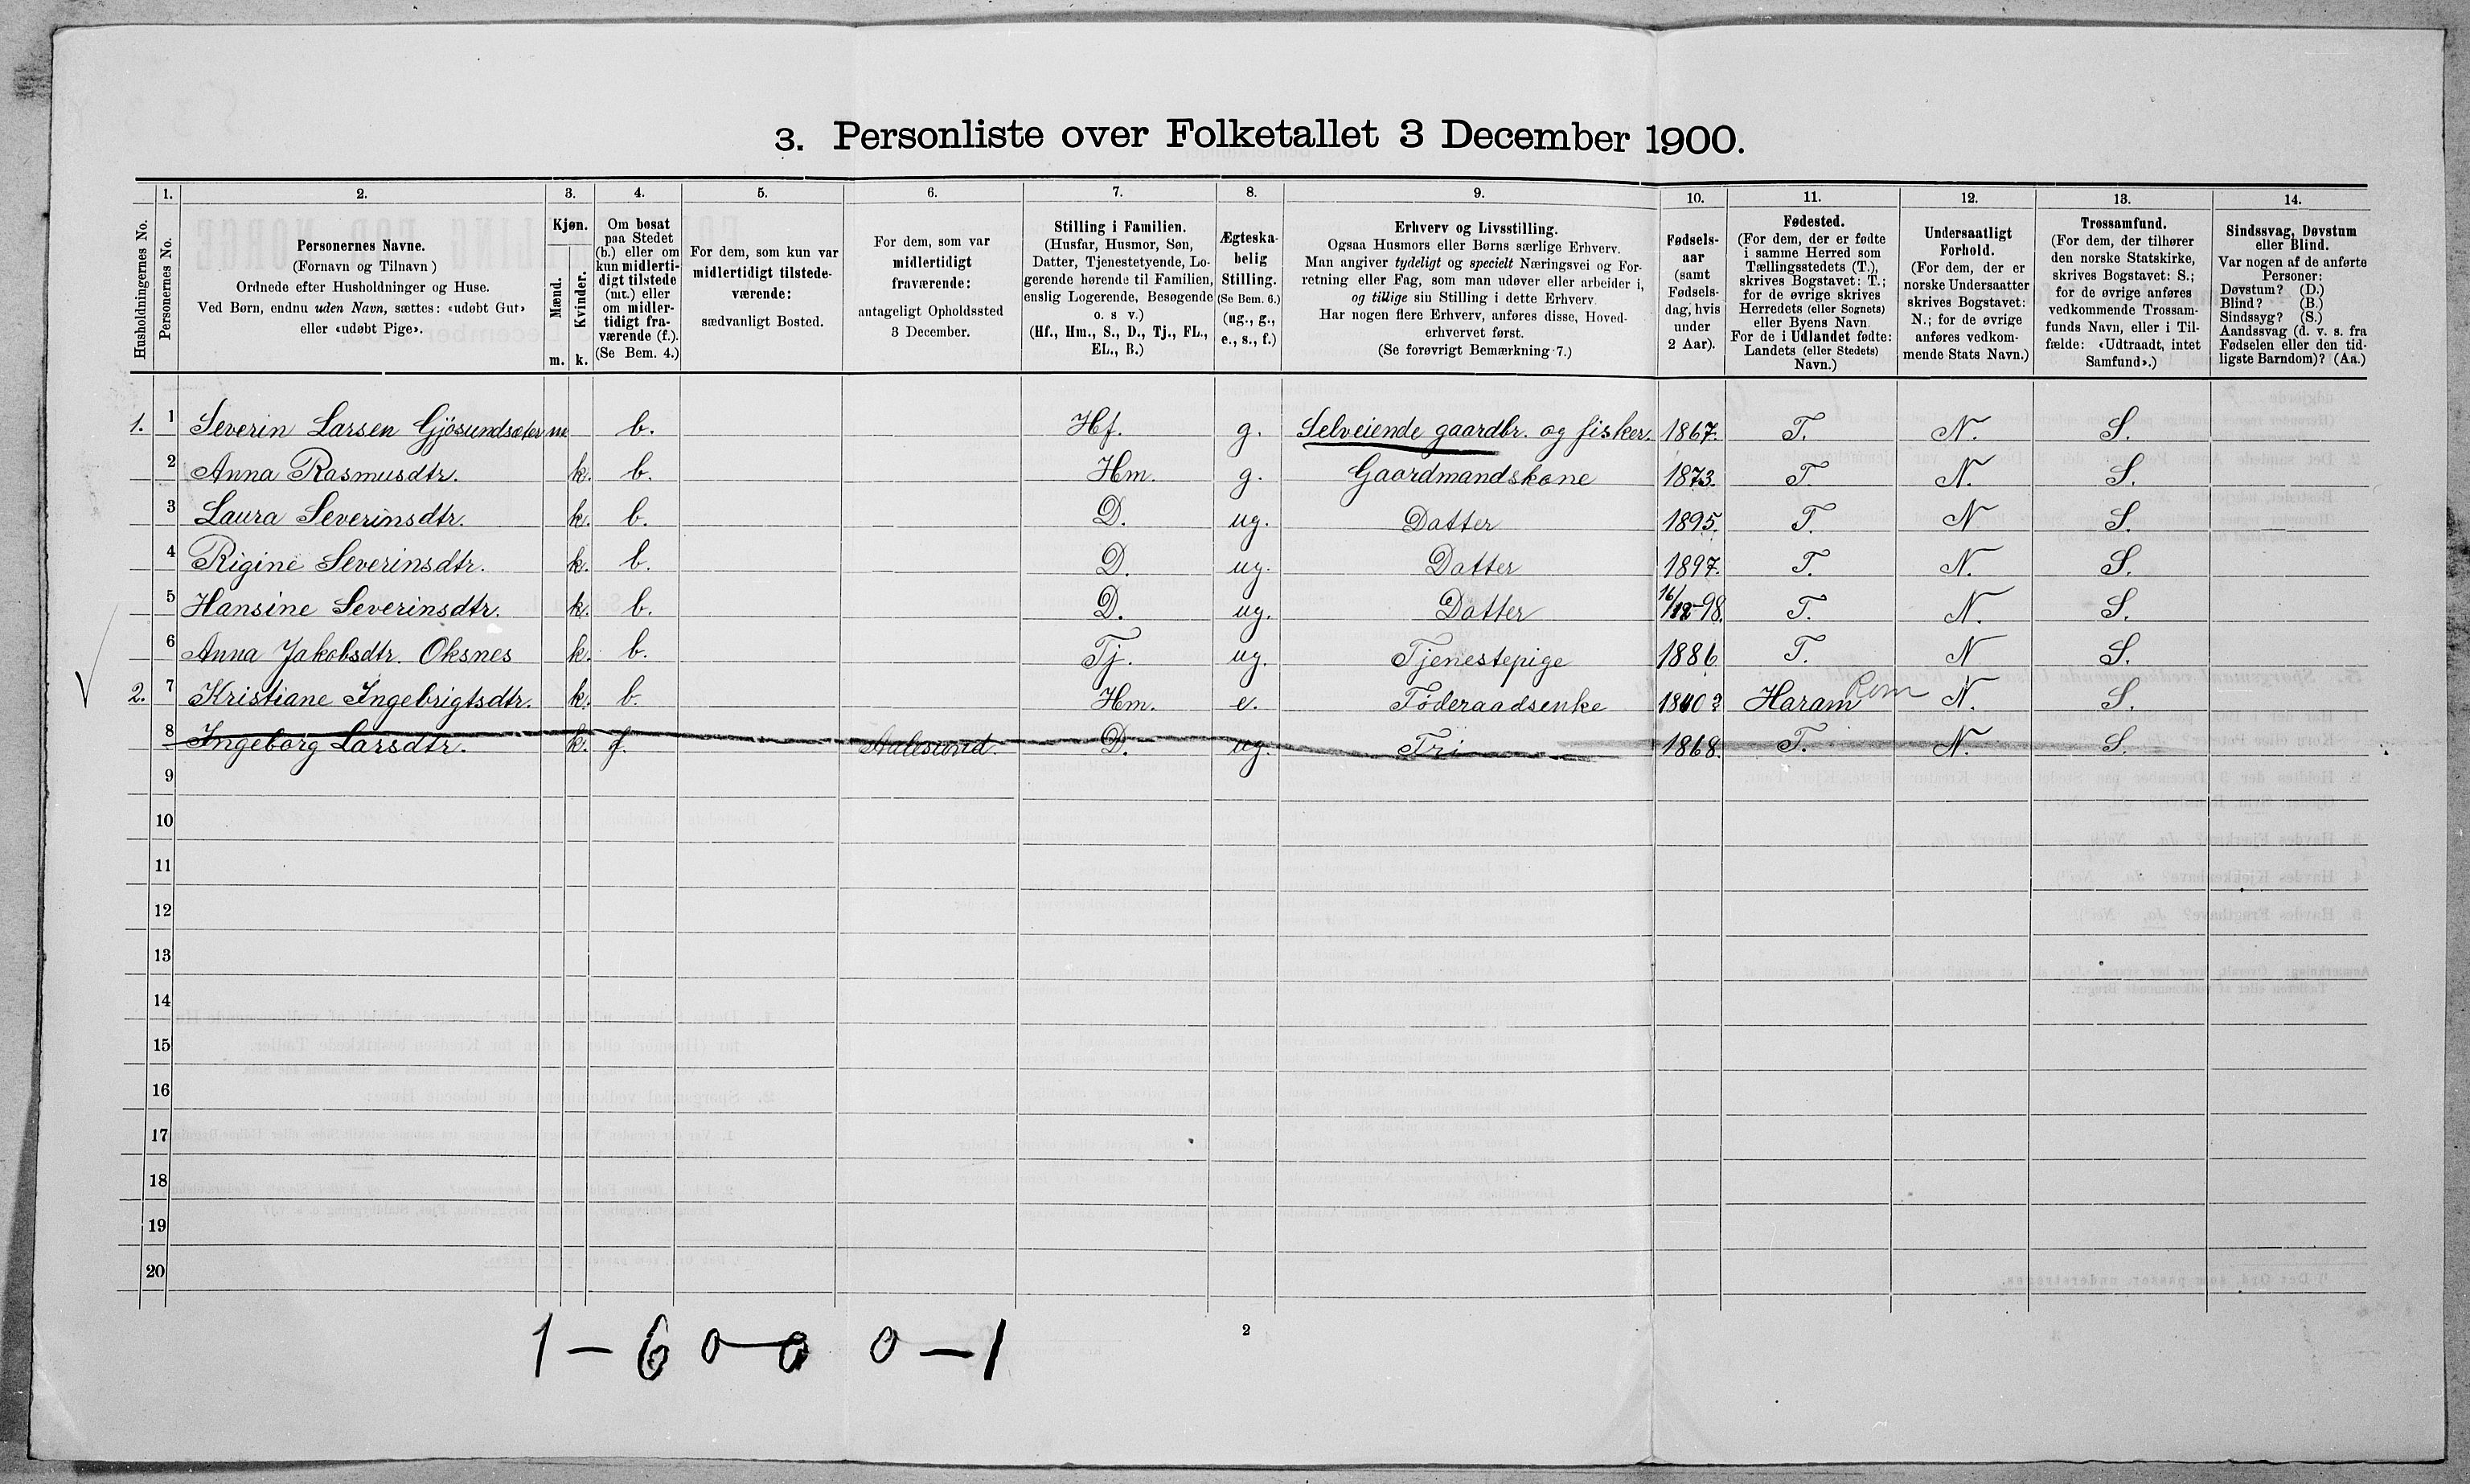 3. Personliste over Folketallet 3 December 1900.
Husholdningernes No.
1. Personernes No.
2. Personernes Navne.
(Fornavn og Tilnavn)
Ordnede efter Husholdninger og Huse.
Ved Børn, endnu uden Navn, sættes: «udøbt Gut»
eller «udøbt Pige».
3. Kjøn.
Mænd. m.
Kvinder. k.
4. Om bosat
paa Stedet
(b.) eller om
kun midlerti-
digt tilstede
(mt.) eller
om midler-
tidigt fra-
værende (f.).
(Se Bem. 4.)
5. For dem, som kun var
midlertidigt tilstede-
værende:
sædvanligt Bosted.
6. For dem, som var
midlertidigt
fraværende:
antageligt Opholdssted
3 December.
7. Stilling i Familien.
(Husfar, Husmor, Søn,
Datter, Tjenestetyende, Lo-
gerende hørende til Familien,
enslig Logerende, Besøgende
o. s v.)
(Hf., Hm., S., D., Tj., FL.,
EL., B.)
8. Ægteska-
belig
Stilling.
(Se Bem. 6.)
(ug., g.,
e., s., f.)
9. Erhverv og Livsstilling.
Ogsaa Husmors eller Børns særlige Erhverv.
Man angiver tydeligt og specielt Næringsvei og For-
retning eller Fag, som man udøver eller arbeider i,
og tillige sin Stilling i dette Erhverv.
Har nogen flere Erhverv, anføres disse, Hoved-
erhvervet først.
(Se forøvrigt Bemærkning 7.)
10. Fødsels-
aar
(samt
Fødsels-
dag, hvis
under
2 Aar).
11. Fødested.
(For dem, der er fødte
i samme Herred som
Tællingsstedets (T.),
skrives Bogstavet: T.;
for de øvrige skrives
Herredets (eller Sognets)
eller Byens Navn.
For de i Udlandet fødte:
Landets (eller Stedets)
Navn.)
12. Undersaatligt
Forhold.
(For dem, der er
norske Undersaatter
skrives Bogstavet:
N.; for de øvrige
anføres vedkom-
mende Stats Navn.)
13. Trossamfund.
(For dem, der tilhører
den norske Statskirke,
skrives Bogstavet: S.;
for de øvrige anføres
vedkommende Trossam-
funds Navn, eller i Til-
fælde: «Udtraadt, intet
Samfund».)
14. Sindssvag, Døvstum
eller Blind.
Var nogen af de anførte
Personer:
Døvstum? (D.)
Blind? (B.)
Sindssyg? (S.)
Aandssvag (d. v. s. fra
Fødselen eller den tid-
ligste Barndom)? (Aa.)
1. 1 Severin Larsen Gjøsundsæter m b. Hf. g. Selveiende gaardbr. og fisker. 1867. T. N. S.
2 Anna Rasmusdtr. k. b. Hm. g. Gaardmandskone 1873. T. N. S.
3 Laura Severinsdtr. k. b. D. ug. Datter 1895. T. N S.
4 Rigine Severinsdtr. k. b. D. ug. Datter 1897. T. N. S.
5 Hansine Severinsdtr. k. b. D. ug. Datter 16/12-98. T. N. S.
6 Anna Jakobsdtr. Oksnes k. b. Tj. ug. Tjenestepige 1886 T. N S.
2. 7 Kristiane Ingebrigtsdtr. k. b. Hm. e. Føderaadsenke Haram Rom N. S.
8 Ingeborg Larsdtr. k. f. Aalesund. D. ug. 1868. T. N. S.
9
10
11
12
13
14
15
16
17
18
19
20
2
1 – 6 0 – 0 0 – 1